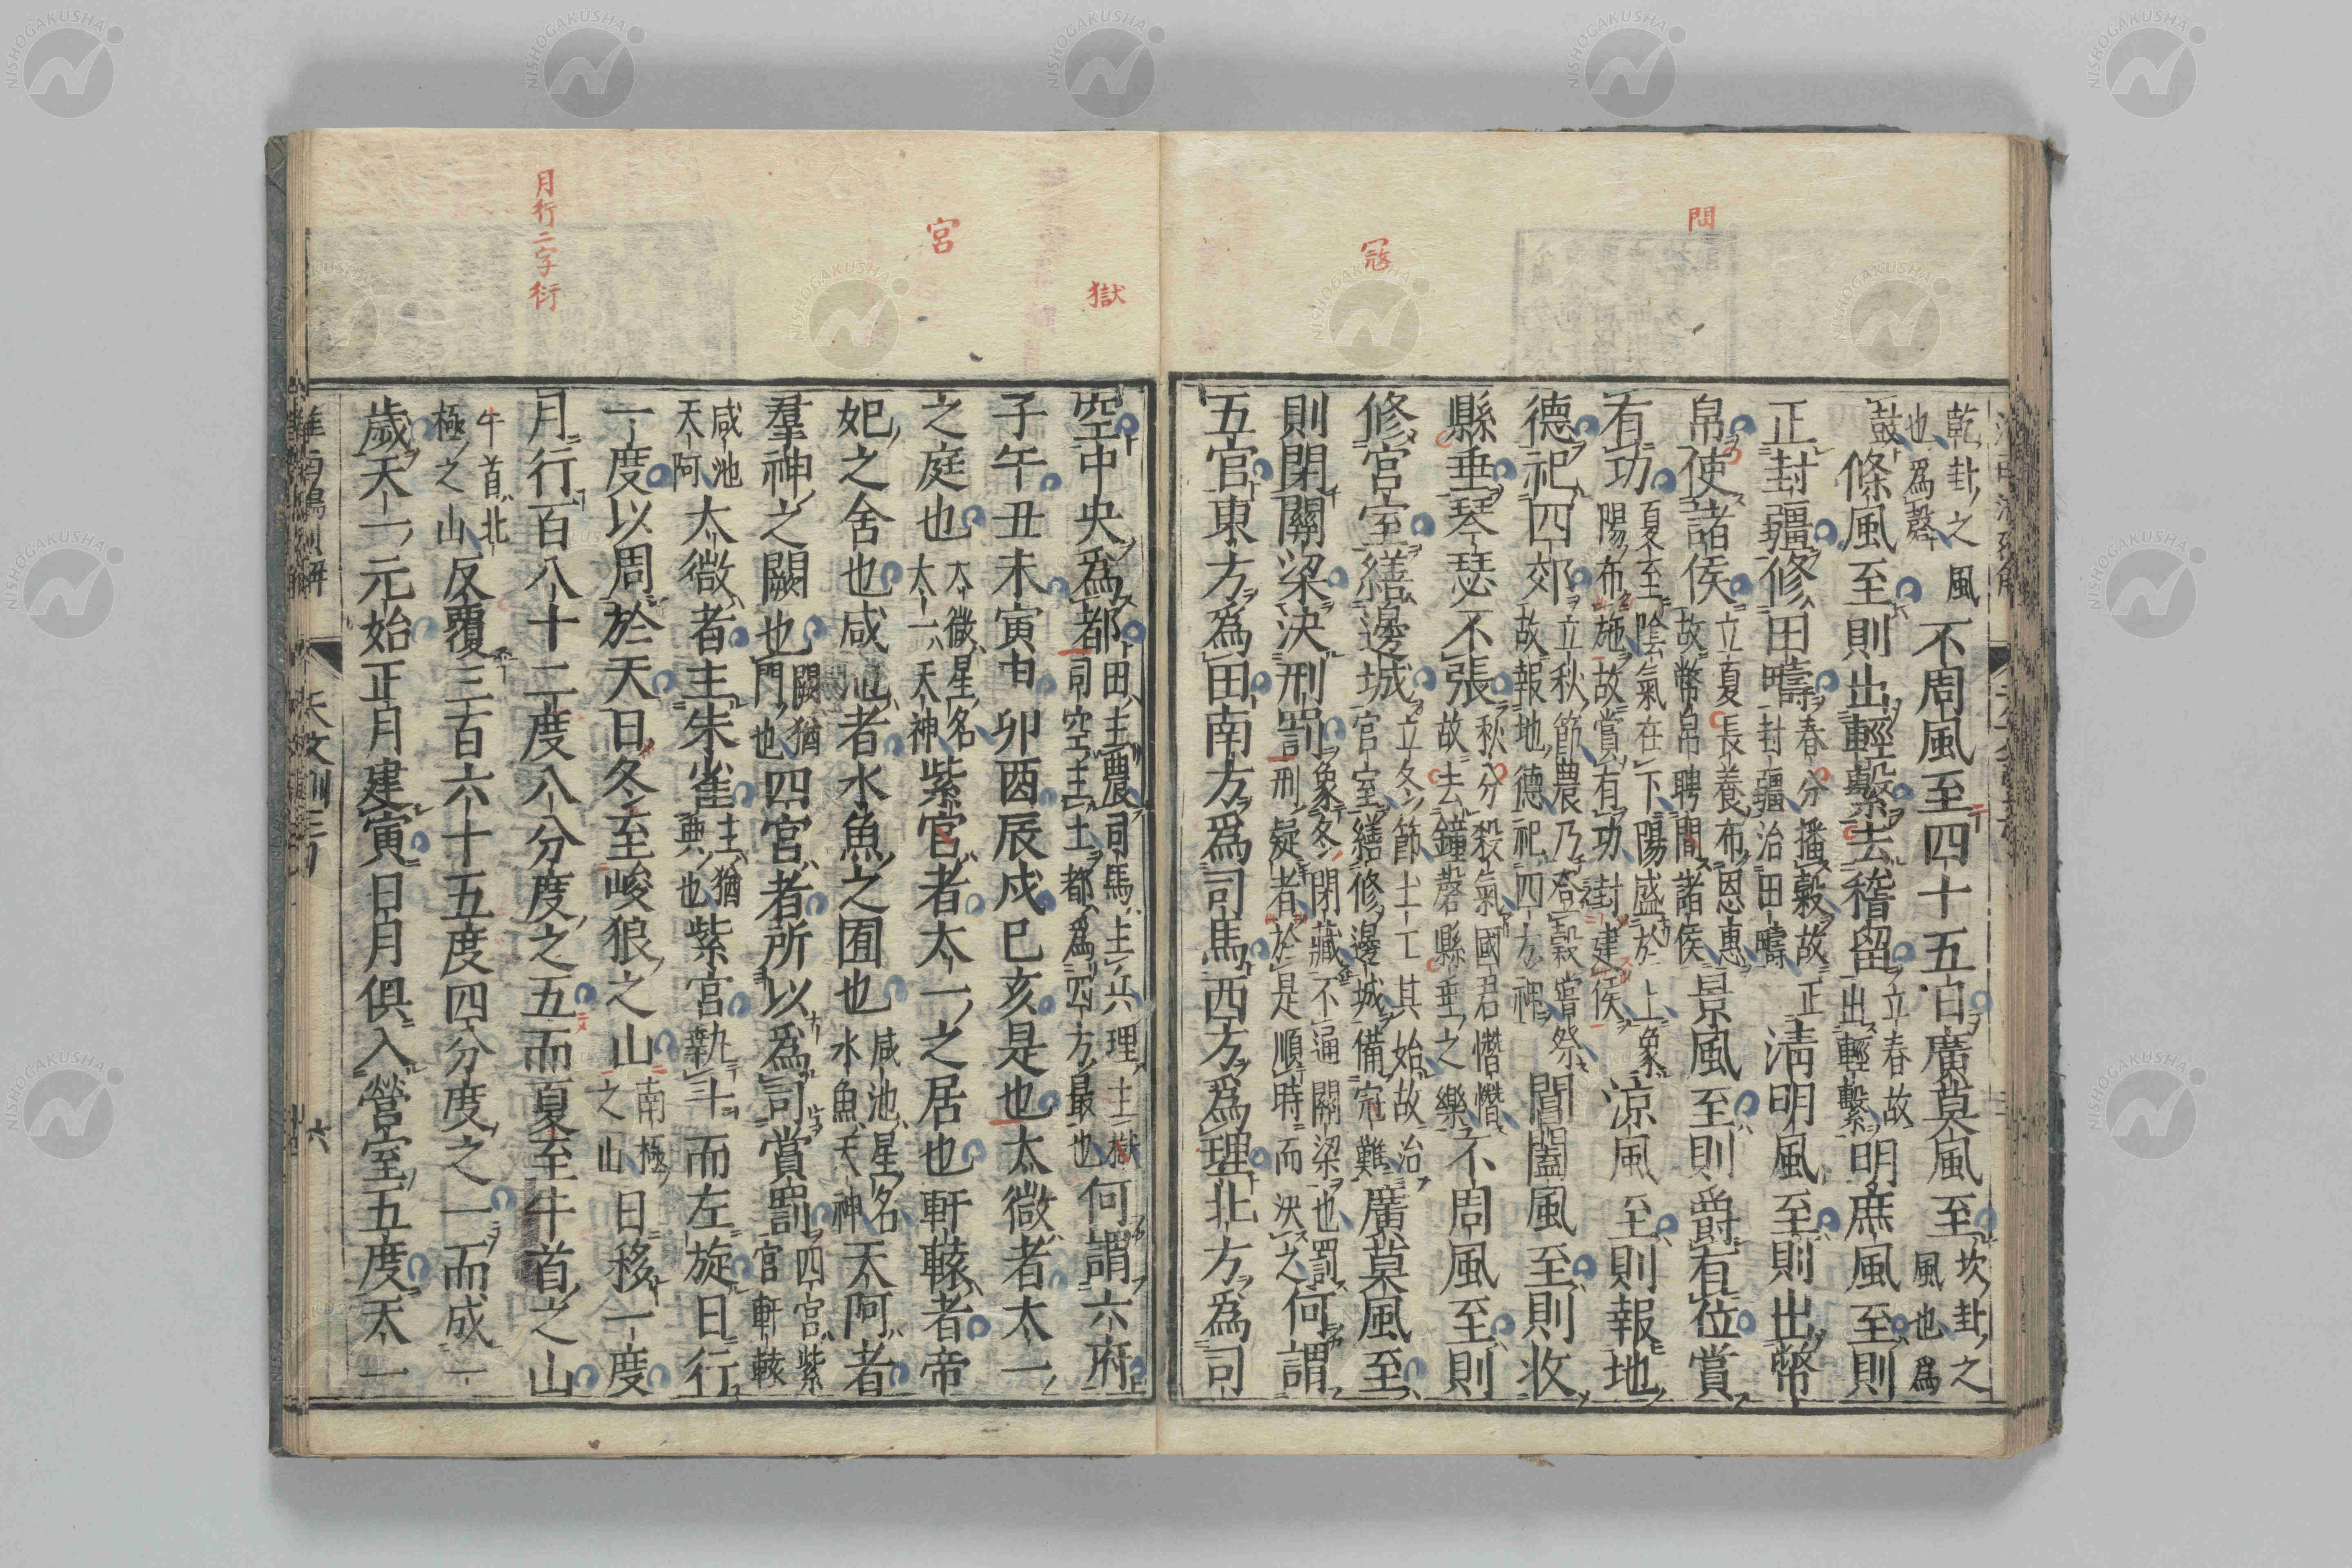 問
寇
乾卦之風也爲磬不周風至四十五日廣莫風至坎卦之風也爲
鼓條風至則出輕繫去稽留立春故出輕繫明庶風至則
正封疆修田疇春分播穀故正封疆治田疇清明風至則出幣
帛使諸侯立夏長養布恩惠故幣帛聘間諸侯景風至則爵有位賞
有功夏至陰氣在下陽盛於上象陽布施故賞有功封建侯涼風至則報地
德祀四郊立秋節農乃登穀嘗祭故報地德祀四方神閶闔風至則收
縣垂琴瑟不張秋分殺氣國君憯憯故去鐘磬縣垂之樂不周風至則
修宮室繕邊城立冬節土工其始故治宮室繕修邊城備寇難廣莫風至
則閉關梁決刑罰象冬閉藏不通關梁也罰刑疑者於是順時而決之何謂
五官東方爲田南方爲司馬西方爲理北方爲司
獄
宮
月行二字衍
空中央爲都田主農司馬主兵理主獄司空主土都爲四方最也何謂六府
子午丑未寅申卯酉辰戌巳亥是也太微者太一
之庭也太微星名太一天神紫官者太一之居也軒轅者帝
妃之舍也咸池者水魚之囿也咸池星名水魚天神天阿者
羣神之闕也闕猶門也四宮者所以爲司賞罰四宮紫官軒轅
咸池天阿太微者主朱雀主猶典也紫宮執斗而左旋日行
一度以周於天日冬至峻狼之山南極之山日移一度
月行百八十二度八分度之五而夏至牛首之山
牛首北極之山反覆三百六十五度四分度之一而成一
歲天一元始正月建寅日月俱入營室五度天一
天文訓三 六